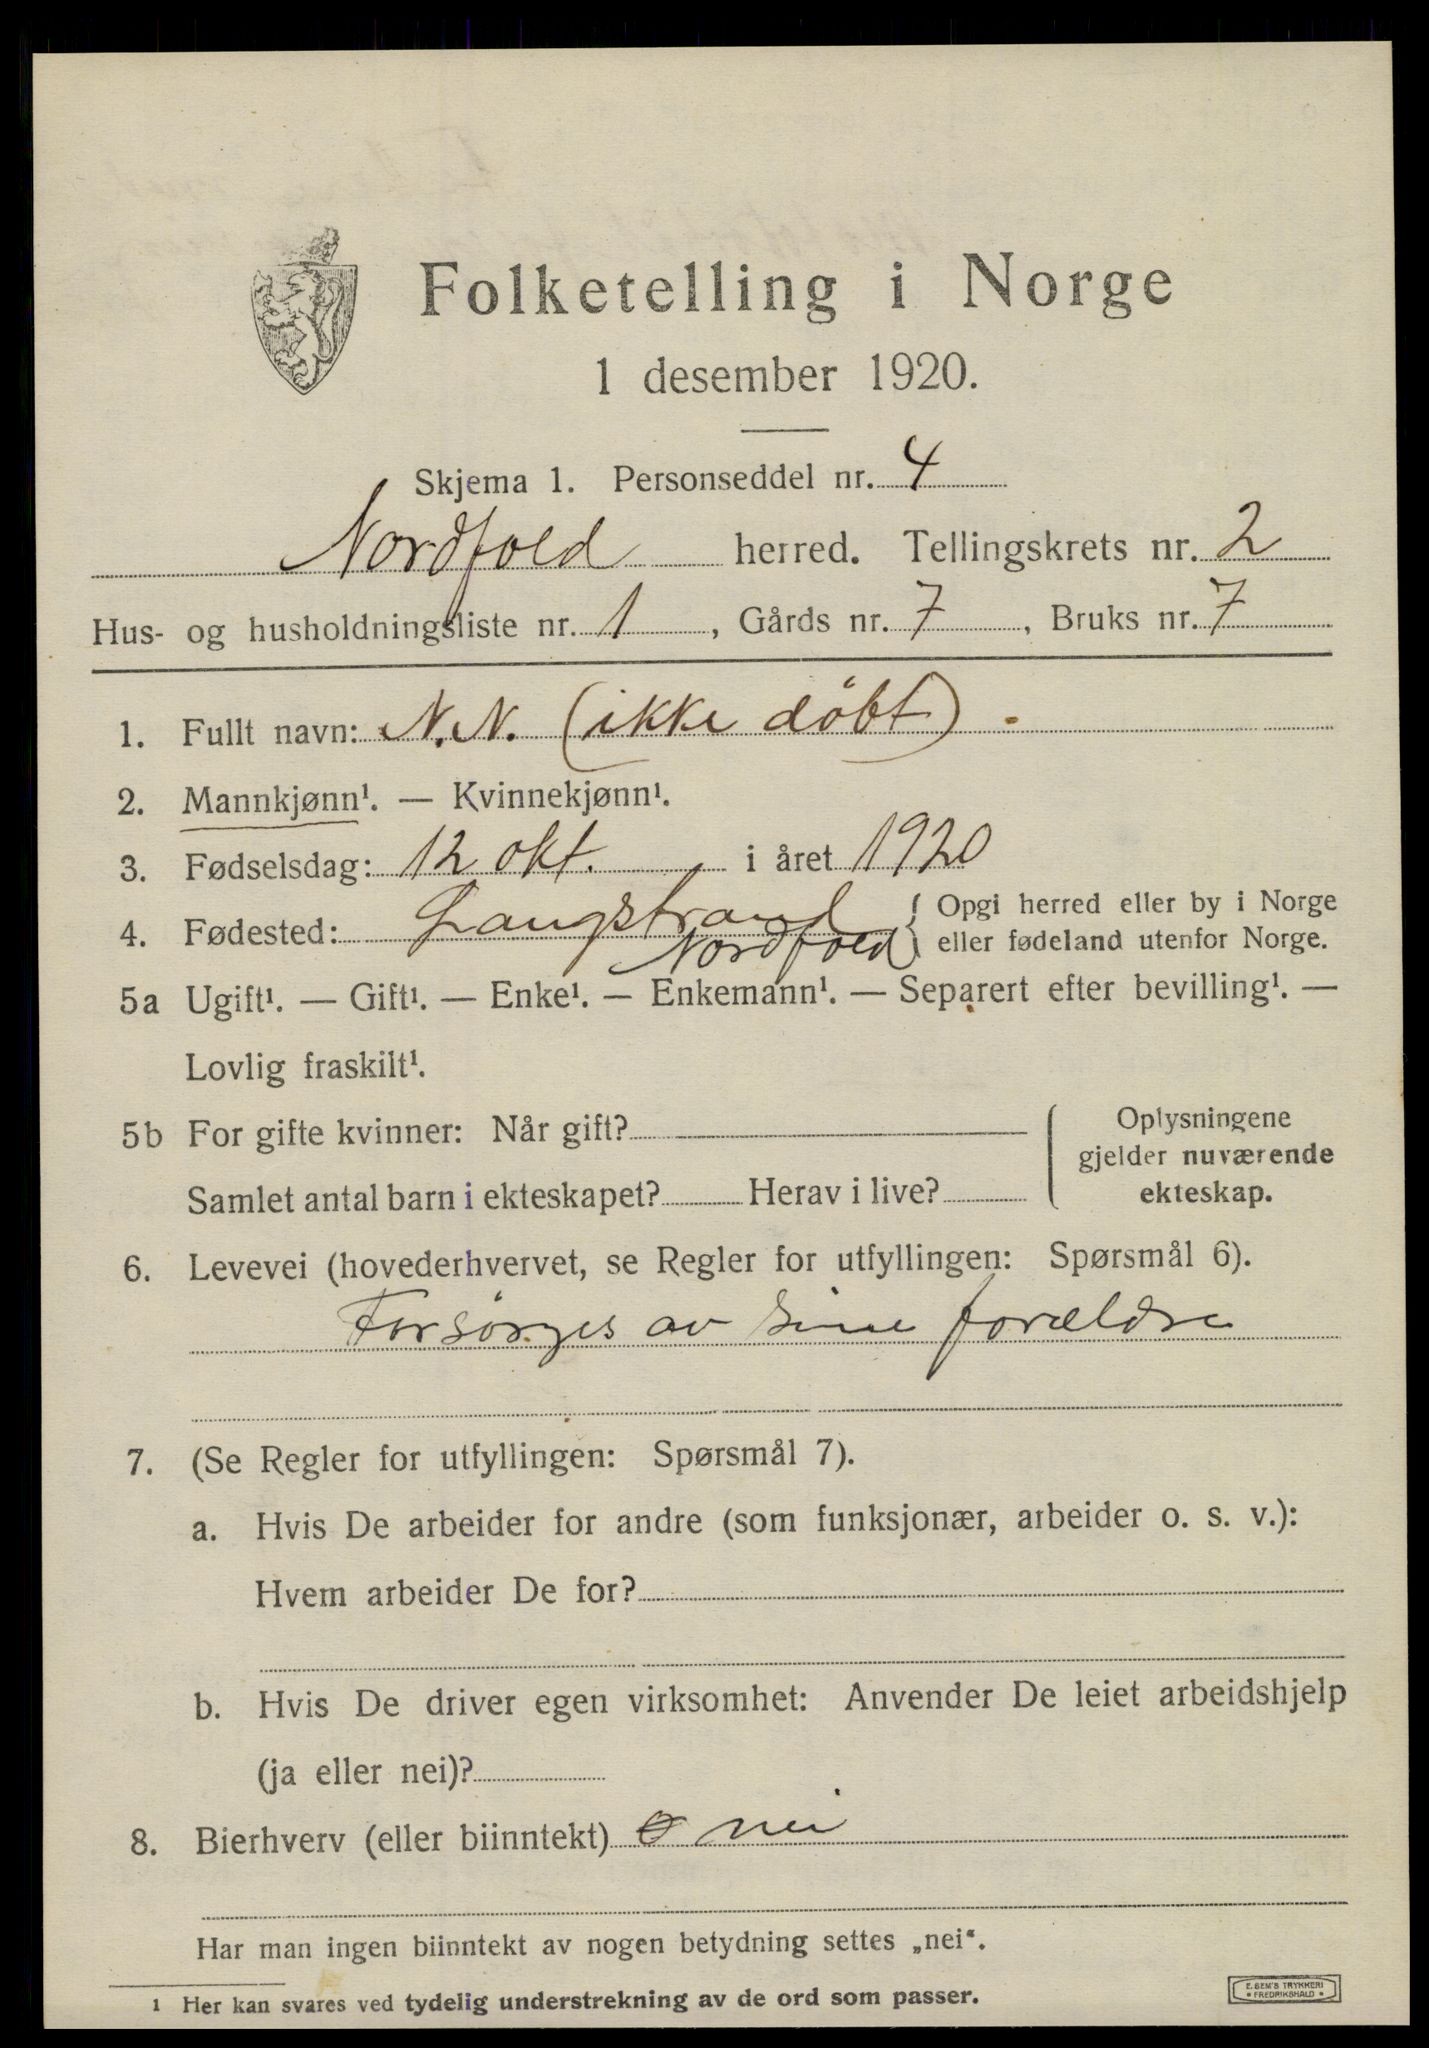 Folketelling i Norge
1 desember 1920.
Skjema 1. Personseddel nr. 4
Nordfold herred. Tellingskrets nr. 2
Hus- og husholdningsliste nr. 1, Gårds nr. 7, Bruks nr. 7
1. Fullt navn: N.N. (ikke döbt).
2. Mannkjønn¹. — Kvinnekjønn¹.
3. Fødselsdag: 12 okt. i året 1920
4. Fødested: Langstrand { Opgi herred eller by i Norge
Nordfold eller fødeland utenfor Norge.
5a Ugift¹. — Gift¹. — Enke¹. — Enkemann¹. — Separert efter bevilling¹. —
Lovlig fraskilt¹.
5b For gifte kvinner: Når gift? Oplysningene
gjelder nuværende
Samlet antal barn i ekteskapet? Herav i live? ekteskap.
6. Levevei (hovederhvervet, se Regler for utfyllingen: Spørsmål 6).
Forsörges av sine forældre
7. (Se Regler for utfyllingen: Spørsmål 7).
a. Hvis De arbeider for andre (som funksjonær, arbeider o. s. v.):
Hvem arbeider De for?
b. Hvis De driver egen virksomhet: Anvender De leiet arbeidshjelp
(ja eller nei)?
8. Bierhverv (eller biinntekt) nei
Har man ingen biinntekt av nogen betydning settes „nei“.
1 Her kan svares ved tydelig understrekning av de ord som passer.
E. SEM'S TRYKKERI
• FREDRIKSHALD •